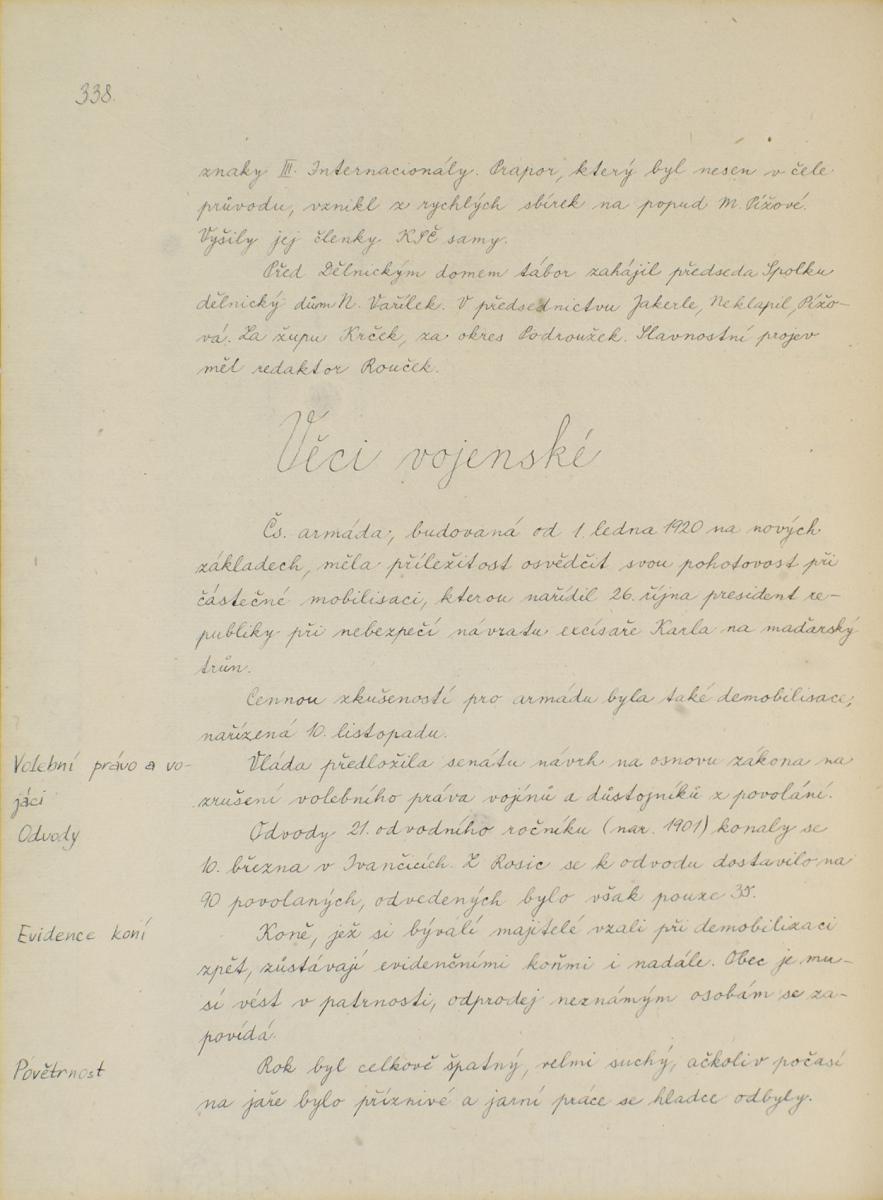 338.
znaky III. Internacionály. Prapor, který byl nesen v čele
průvodu, vznikl z rychlých sbírek na popud M. Pížové.
Vyšily jej členky KSČ samy.
Před Dělnickým domem tábor zahájil předseda Spolku
dělnický dům N. Vařílek. V předsednictvu Jakerle, Neklapil, Pížo-
vá. Za župu Krček, za okres Podroužek. Slavnostní projev
měl redaktor Rouček.
Věci vojenské
Čs. armáda, budovaná od 1. ledna 1920 na nových
základech, měla příležitost osvědčit svou pohotovost při
částečné mobilisaci, kterou nařídil 26. října president re-
publiky při nebezpečí návratu excísaře Karla na maďarský
trůn.
Cennou zkušeností pro armádu byla také demobilisace,
nařízená 10. listopadu.
Volební právo a vo-
jáci
Vláda předložila senátu návrh na osnovu zákona na
zrušení volebního práva vojínů a důstojníků z povolání.
Odvody
Odvody 21. odvodního ročníku (nar. 1901) konaly se
10. března v Ivančicích. Z Rosic se k odvodu dostavilo na
90 povolaných, odvedených bylo však pouze 35.
Evidence koní
Koně, jež si býválí majitelé vzali při demobilizaci
zpět, zůstávají evidenčními koňmi i nadále. Obec je mu-
sí vést v patrnosti, odprodej neznámým osobám se za-
povídá.
Povětrnost
Rok byl celkově špatný, velmi suchý, ačkoliv počasí
na jaře bylo příznivé a jarní práce se hladce odbyly.